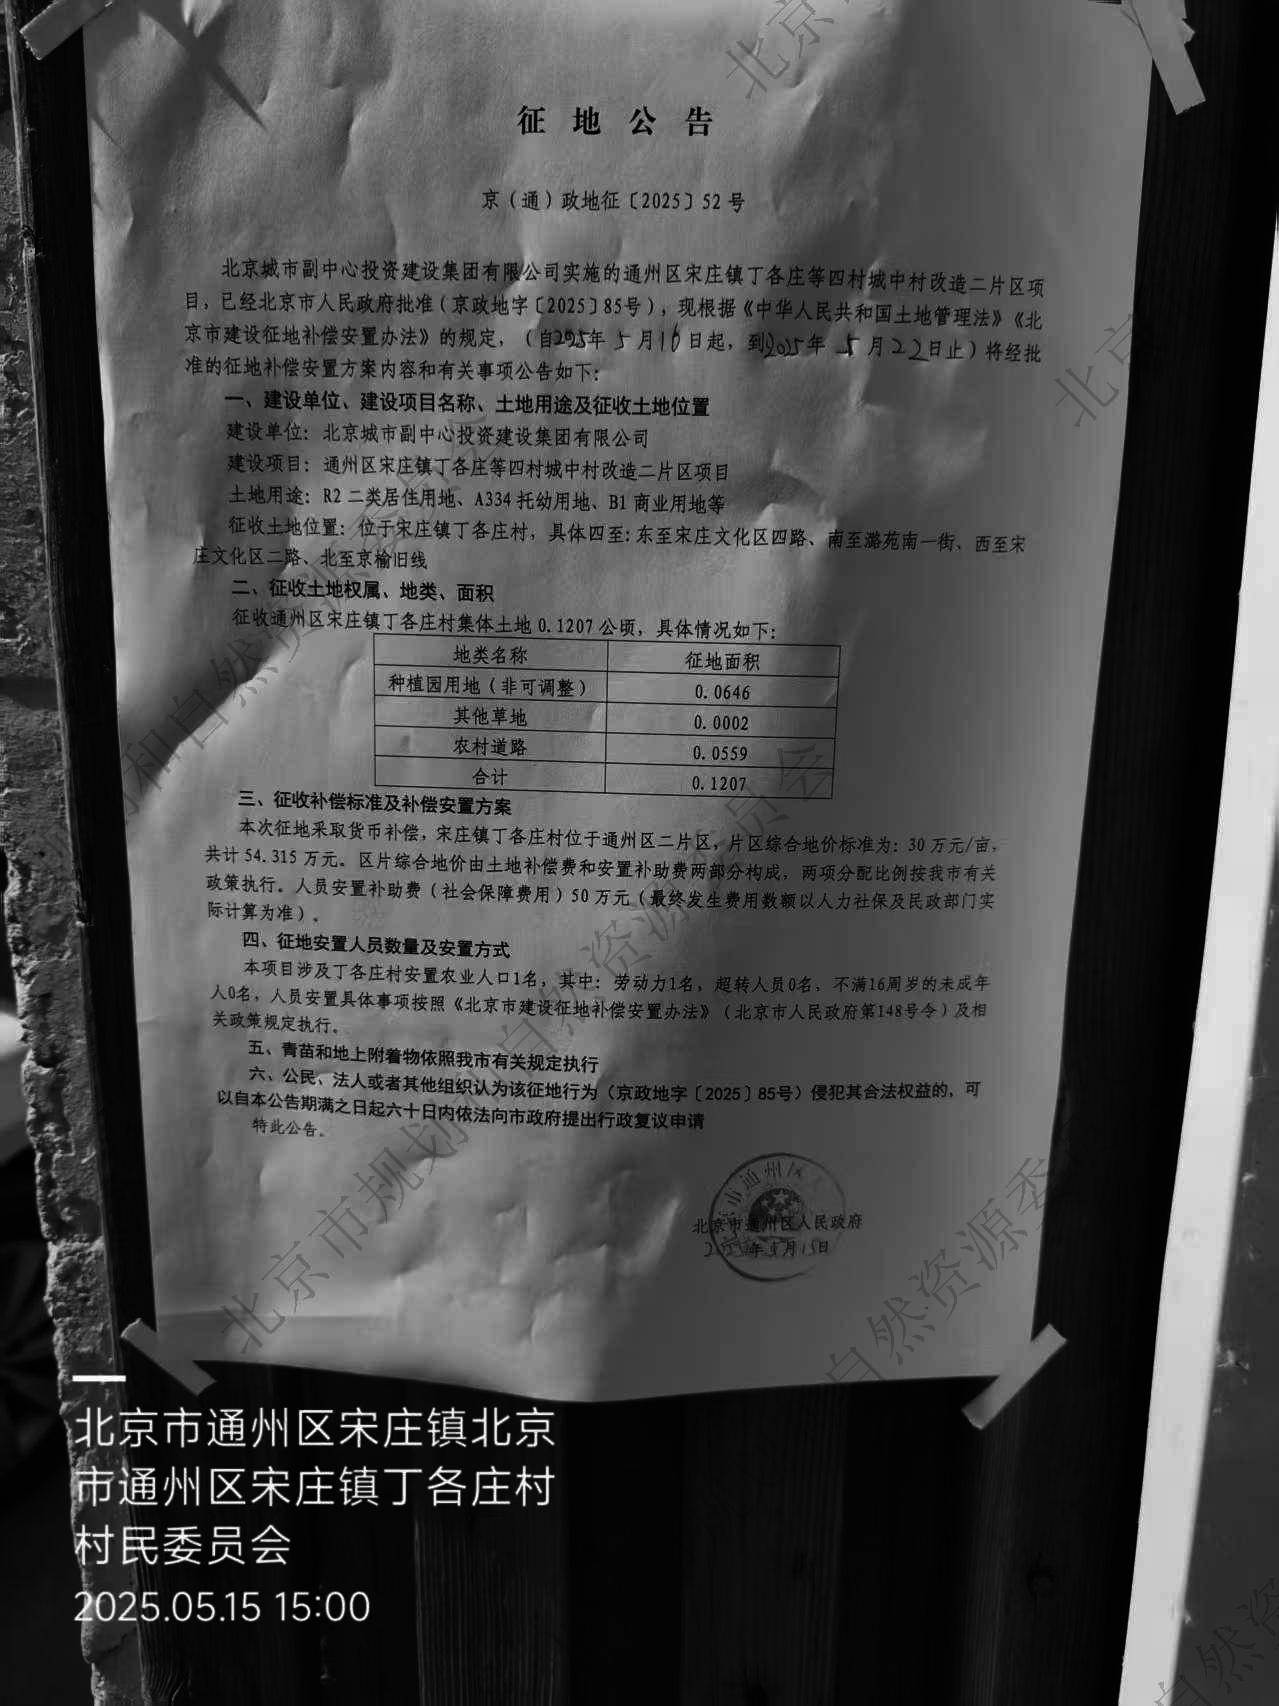 征地公告
京（通）政地征〔2025〕52号
北京城市副中心投资建设集团有限公司实施的通州区宋庄镇丁各庄等四村城中村改造二片区项
目，已经北京市人民政府批准（京政地字〔2025〕85号），现根据《中华人民共和国土地管理法》《北
京市建设征地补偿安置办法》的规定，（自2025年5月16日起，到2025年5月22日止）将经批
准的征地补偿安置方案内容和有关事项公告如下：
一、建设单位、建设项目名称、土地用途及征收土地位置
建设单位：北京城市副中心投资建设集团有限公司
建设项目：通州区宋庄镇丁各庄等四村城中村改造二片区项目
土地用途：R2 二类居住用地、A334 托幼用地、B1 商业用地等
征收土地位置：位于宋庄镇丁各庄村，具体四至：东至宋庄文化区四路、南至潞苑南一街、西至宋
庄文化区二路、北至京榆旧线
二、征收土地权属、地类、面积
征收通州区宋庄镇丁各庄村集体土地0.1207公顷，具体情况如下：
地类名称 征地面积
种植园用地（非可调整） 0.0646
其他草地 0.0002
农村道路 0.0559
合计 0.1207
三、征收补偿标准及补偿安置方案
本次征地采取货币补偿，宋庄镇丁各庄村位于通州区二片区，片区综合地价标准为：30万元/亩，
共计54.315万元。区片综合地价由土地补偿费和安置补助费两部分构成，两项分配比例按我市有关
政策执行。人员安置补助费（社会保障费用）50万元（最终发生费用数额以人力社保及民政部门实
际计算为准）。
四、征地安置人员数量及安置方式
本项目涉及丁各庄村安置农业人口1名，其中：劳动力1名，超转人员0名，不满16周岁的未成年
人0名，人员安置具体事项按照《北京市建设征地补偿安置办法》（北京市人民政府第148号令）及相
关政策规定执行。
五、青苗和地上附着物依照我市有关规定执行
六、公民、法人或者其他组织认为该征地行为（京政地字〔2025〕85号）侵犯其合法权益的，可
以自本公告期满之日起六十日内依法向市政府提出行政复议申请
特此公告。
北京市通州区人民政府
2025年5月15日
北京市通州区宋庄镇北京
市通州区宋庄镇丁各庄村
村民委员会
2025.05.15 15:00
北京市规划和自然资源委员会